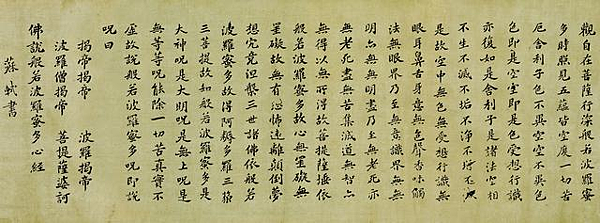 觀自在菩薩行深般若波羅蜜
多時照見五蘊皆空度一切苦
厄舍利子色不異空空不異色
色即是空空即是色受想行識
亦復如是舍利子是諸法空相
不生不滅不垢不淨不增不減
是故空中無色無受想行識無
眼耳鼻舌身意無色聲香味觸
法無眼界乃至無意識界無無
明亦無無明盡乃至無老死亦
無老死盡無苦集滅道無智亦
無得以無所得故菩提薩埵依
般若波羅蜜多故心無罣礙無
罣礙故無有恐怖遠離顛倒夢
想究竟涅槃三世諸佛依般若
波羅蜜多故得阿耨多羅三藐
三菩提故知般若波羅蜜多是
大神呪是大明呪是無上呪是
無等等呪能除一切苦真實不
虛故說般若波羅蜜多呪即說
呪曰
揭帝揭帝 波羅揭帝
波羅僧揭帝 菩提薩婆訶
佛說般若波羅蜜多心經
蘇軾書